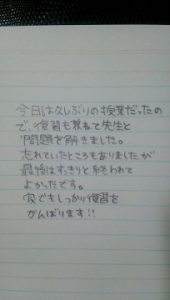 今日は久しぶりの授業だったの
で、復習も兼ねて先生と
問題を解きました。
忘れていたところもありましたが
最後はすっきりと終われて
よかったです。
家でもしっかり復習を
がんばります!!